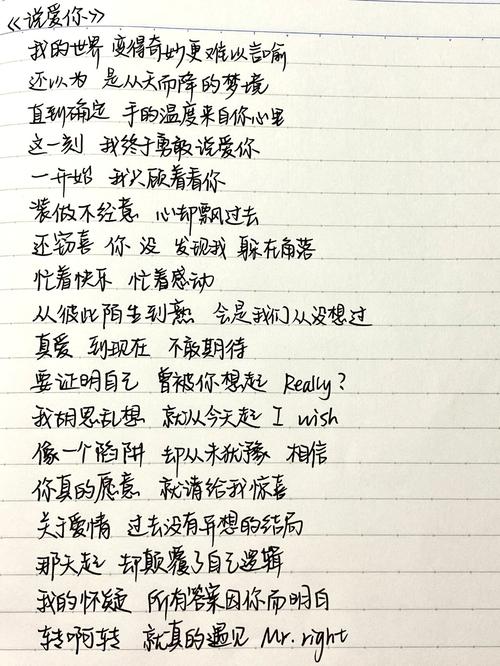 《说爱你》
我的世界 变得奇妙更难以言喻
还以为 是从天而降的梦境
直到确定 手的温度来自你心里
这一刻 我终于勇敢说爱你
一开始 我只顾着看你
装做不经意 心却飘过去
还窃喜 你 没 发现我 躲在角落
忙着快乐 忙着感动
从彼此陌生到熟 会是我们从没想过
真爱 到现在 不敢期待
要证明自己 曾被你想起 Really?
我胡思乱想 就从今天起 I wish
像一个陷阱 却从未犹豫 相信
你真的愿意 就请给我惊喜
关于爱情 过去没有异想的结局
那天起 却颠覆了自己逻辑
我的怀疑 所有答案因你而明白
转啊转 就真的遇见 Mr. right